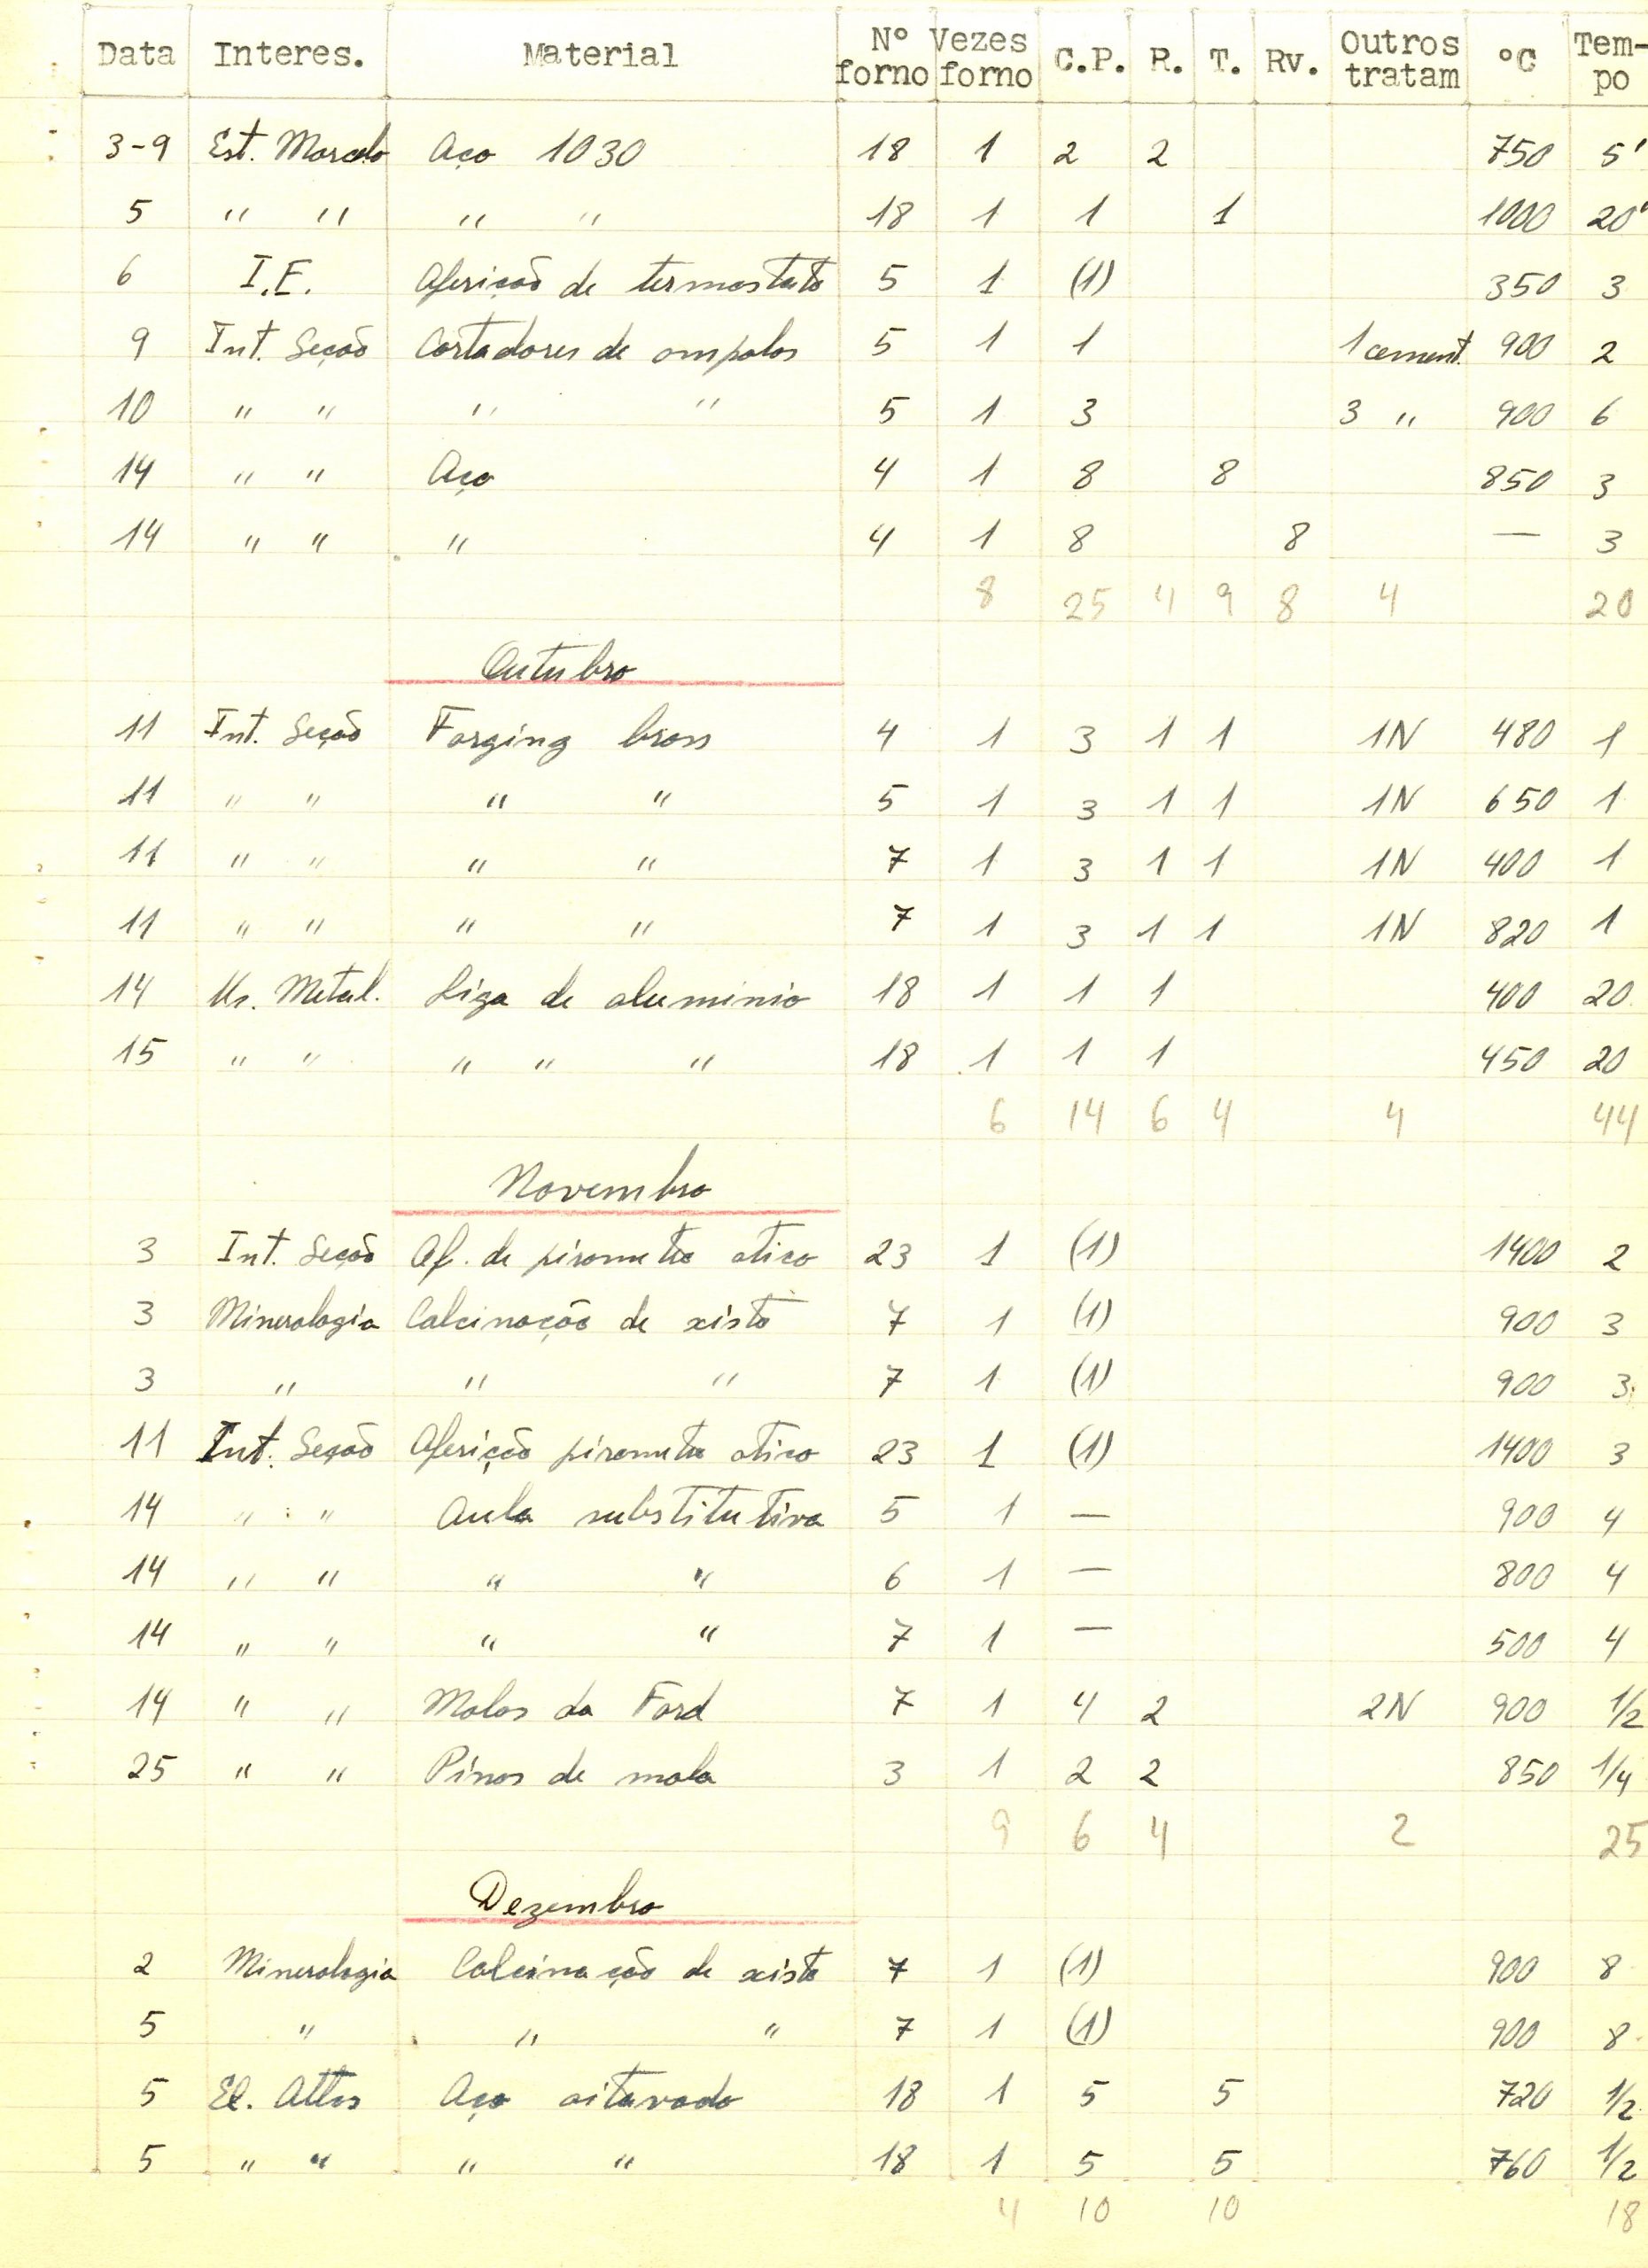 Data Interes. Material Nº forno Vezes forno C.P. R. T. Rv. Outros tratam ºC Tem-po
3-9 Est. Marcelo Aço 1030 18 1 2 2 750 5'
5 " " " " 18 1 1 1 1000 20'
6 I.E. Aferição de termostato 5 1 (1) 350 3
9 Int. Seção Cortadores de ampolas 5 1 1 1 cement. 900 2
10 " " " " 5 1 3 3 " 900 6
14 " " Aço 4 1 8 8 850 3
14 " " " 4 1 8 8 — 3
8 25 4 9 8 4 20
Outubro
11 Int. Seção Forging brass 4 1 3 1 1 1N 480 1
11 " " " " 5 1 3 1 1 1N 650 1
11 " " " " 7 1 3 1 1 1N 400 1
11 " " " " 7 1 3 1 1 1N 820 1
14 Metal. Liga de aluminio 18 1 1 1 400 20
15 " " " " " 18 1 1 1 450 20
6 14 6 4 4 44
Novembro
3 Int. Seção Af. de pirometro otico 23 1 (1) 1400 2
3 Mineralogia Calcinação de xisto 7 1 (1) 900 3
3 " " " 7 1 (1) 900 3
11 Int. Seção Aferição pirometro otico 23 1 (1) 1400 3
14 " " Aula substitutiva 5 1 — 900 4
14 " " " " 6 1 — 800 4
14 " " " " 7 1 — 500 4
14 " " Molas da Ford 7 1 4 2 2N 900 1/2
25 " " Pinos de mola 3 1 2 2 850 1/4
9 6 4 2 25
Dezembro
2 Mineralogia Calcinação de xisto 7 1 (1) 900 8
5 " " " 7 1 (1) 900 8
5 El. Atlas Aço oitavado 18 1 5 5 720 1/2
5 " " " " 18 1 5 5 760 1/2
4 10 10 18